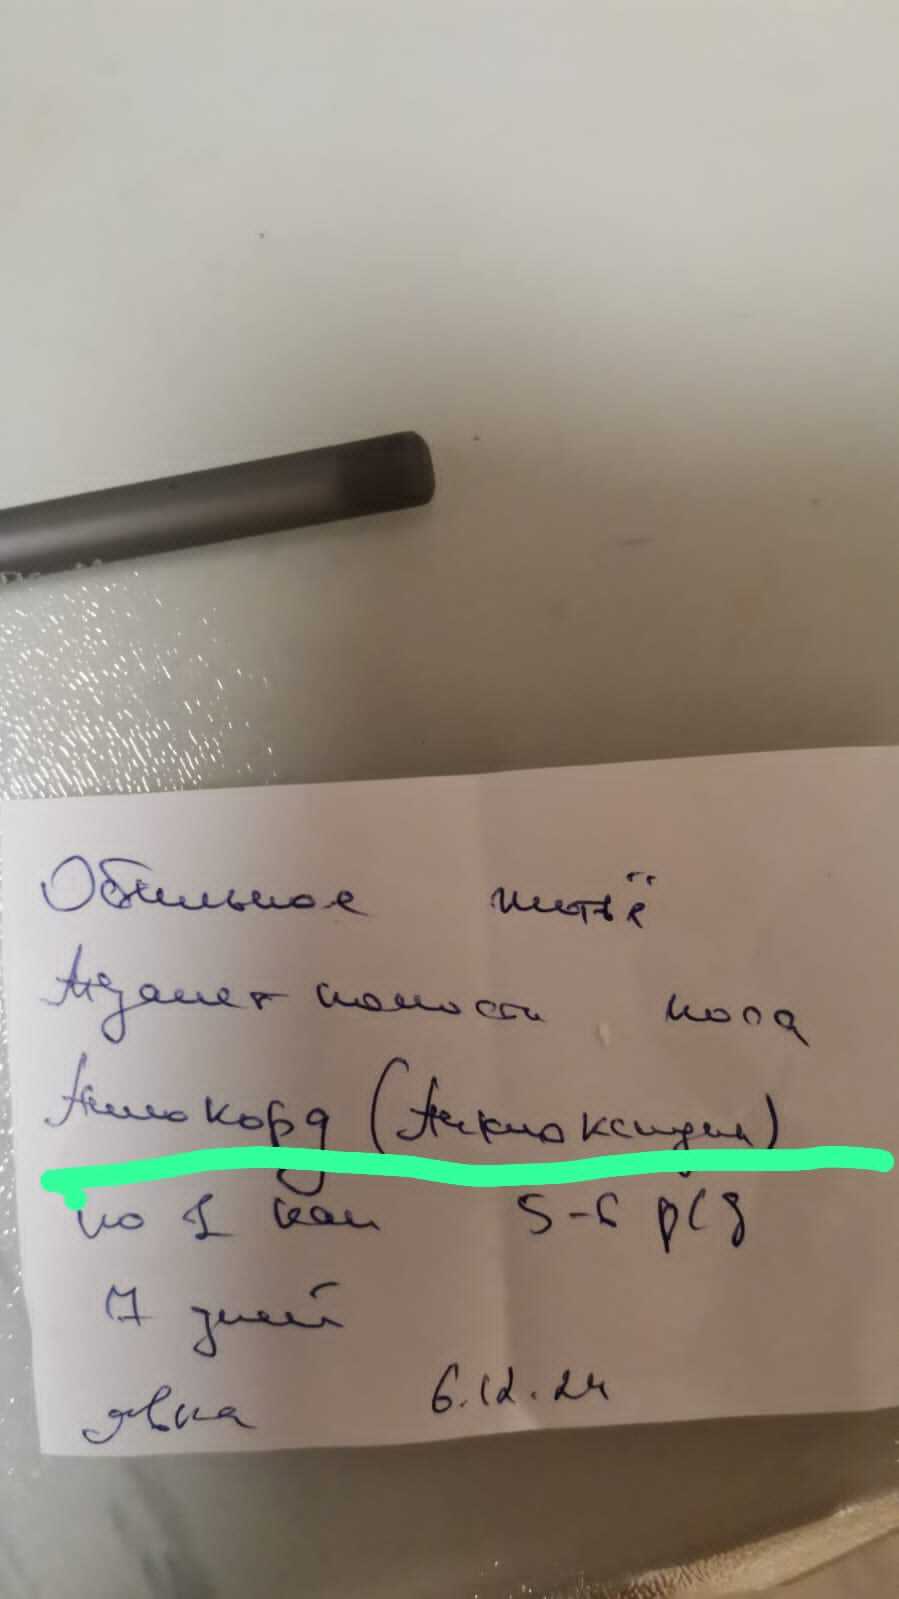 Обильное питьё
Туалет полости носа
по 1 кап 5-6 р/д
7 дней
явка 6.12.24